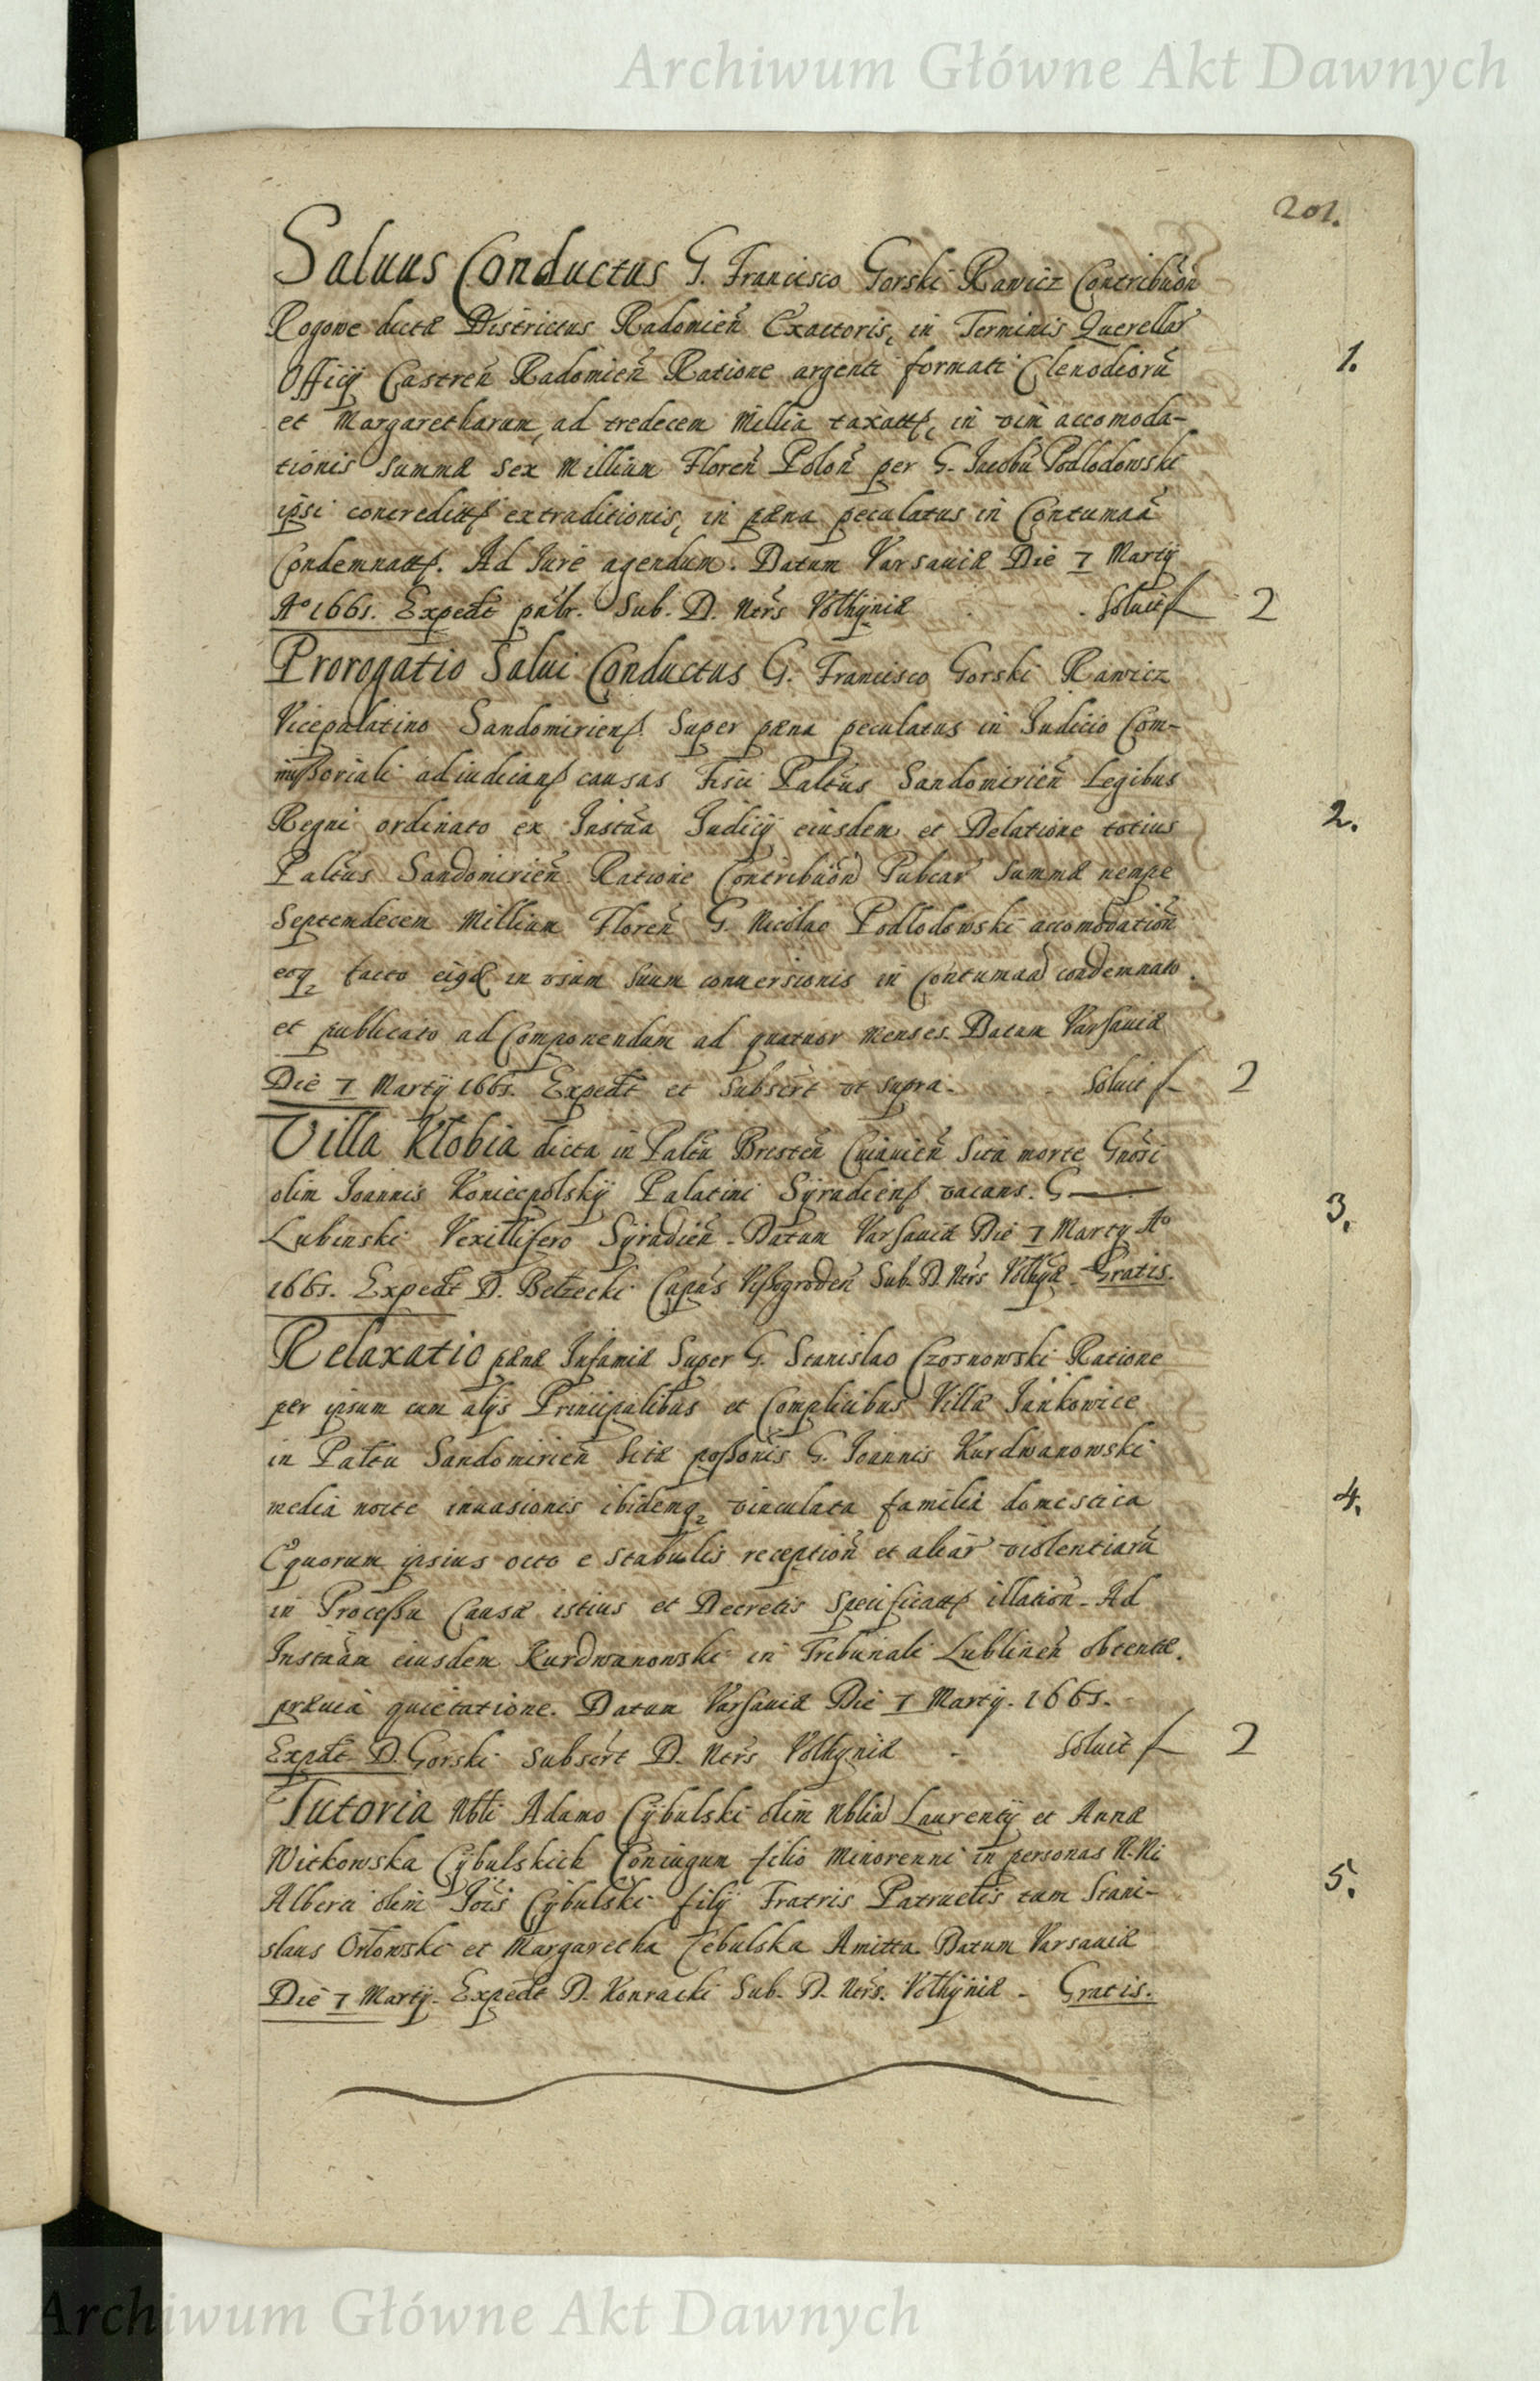 Archiwum Główne Akt Dawnych
201.
Saluus Conductus G. Francisco Gorski Rawicz Contribuõn
Pogowe dictæ Districtus Radomien̄ Exactoris, in Terminis Querellar̄
Officij Castren̄ Radomien̄ Ratione argenti formati Clenodiorū
1.
et Margaretharum, ad tredecem Millia taxatt, in vim accomoda-
tionis Summæ Sex Millium Floren̄ Polon̄ per G. Jacobū Podlodowski
ipsi concreditt extraditionis, in pæna peculatus in Contumaã
Condemnatt. Ad Iure agendum. Datum Varsauiæ Die 7 Martij
Aº 1661. Expedt Sub. D. Ntrs Volhÿniæ . . Soluit f 2
Prorogatio Salui Conductus G. Francisco Gorski Rawicz
Vicepalatino Sandomirien. Super pæna peculatus in Judicio Com-
mißoriali adiudican causas Fisci Paltūs Sandomirien̄ Legibus
Regni ordinato ex Instãa Judicij eiusdem et Delatione totius
2.
Paltūs Sandomirien̄ Ratione Contribuõn Pubcar̄ Summæ nempe
Septemdecem Millium Floren̄ G. Nicolao Podlodowski accomodation̄
eoq facto in vsum Suum conuersionis in Contumaã condemnato.
et publicato ad Componendum ad quatuor Menses. Datum Varsauiæ
Die 7 Martij 1661. Expedt et Subscrt vt supra. . Soluit f 2
Villa Klobia dicta in Paltū Bresten̄ Cuiauien̄ Sita morte Gnōsi
olim Joannis Koniecpolskÿ Palatini Sÿradien vacans. G——
3.
Lubinski Vexillifero Sÿradien̄. Datum Varsauiæ Die 7 Martij Aº
1661. Expedt D. Betzecki Capñs Vißogroden̄ Sub. D. Ntrs Volhÿæ. Gratis.
Relaxatio pænæ Infamiæ Super G. Stanislao Czosnowski Ratione
per ipsum cum alijs Principalibus et Complicibus Villæ Jankowice
in Paltu Sandomirien̄ Sitæ poßonis G. Joannis Kurdwanowski
media nocte inuasionis ibidemq vinculata familia domestica
4.
Equorum ipsius octo e Stabulis reception̄ et aliar̄ violentiarū
in Proceßu Causæ istius et Decretis Specificatt illation̄. Ad
Instãam eiusdem Kurdwanowski in Tribunali Lublinen̄ obtentæ.
præuia quietatione. Datum Varsauiæ Die 7 Martij. 1661.
Expdt D. Gorski Subscrt D. Ntrs Volhÿniæ - Soluit f 2
Tutoria Nbli Adamo Cÿbulski olim Nbliū Laurentij et Annæ
Witkowska Cÿbulskich Coniugum filio Minorenni in personas N. Ni
5.
Alberti olim Jois Cÿbulski filij Fratris Patruelis tum Stani-
slaus Orłowski et Margaretha Cebulska Amitta. Datum Varsauiæ
Die 7 Martij. Expedt D. Konracki Sub. D. Ntrs. Volhÿniæ - Gratis.
Archiwum Główne Akt Dawnych